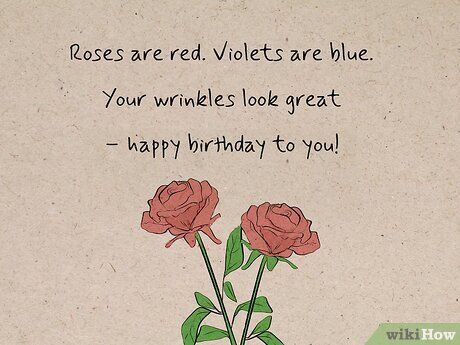 Roses are red. Violets are blue.
Your wrinkles look great
– happy birthday to you!
wikiHow